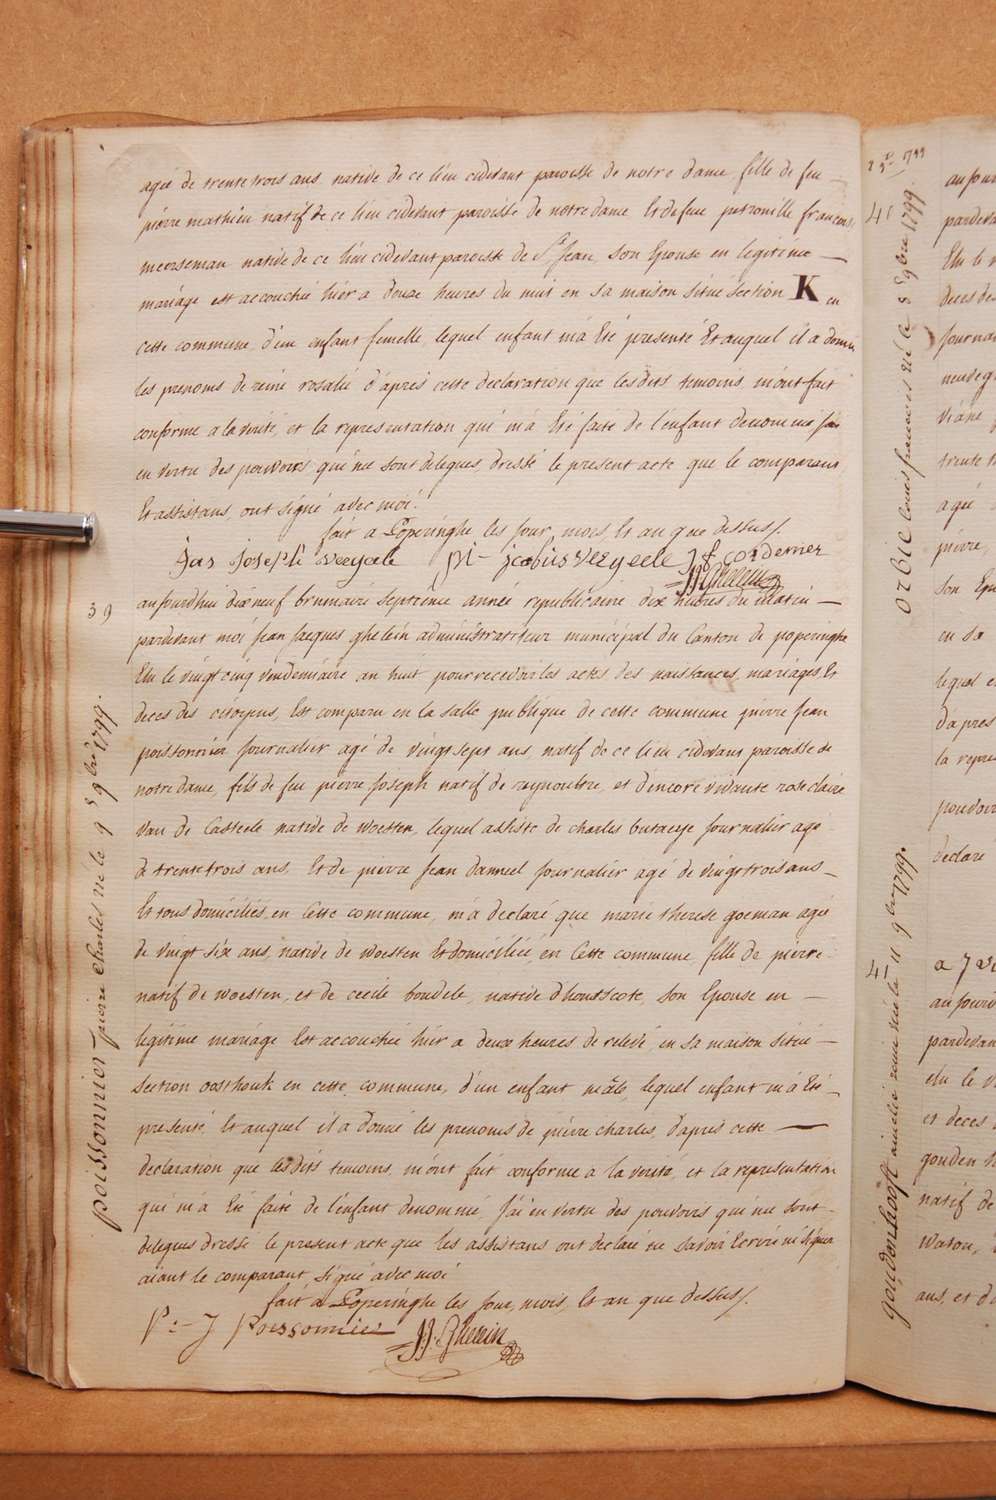 agée de trente trois ans native de ce lieu cidevant paroisse de notre dame, fille de feu —
pierre mathieu natif de ce lieu cidevant paroisse de notre dame Et de feue petronille francoise
meerseman native de ce lieu cidevant paroisse de St Jean, son Epouse en legitime —
mariage est accouchée hier a douze heures du nuit en sa maison situé section K en
cette commune, d'un enfant femelle, lequel enfant m'a Eté presenté Et auquel il a donné
les prenoms de reine rosalie d'après cette declaration que lesdits temoins m'ont fait
conforme a la verité, et la representation qui m'a Eté faite de l'enfant denommé j'ai
en vertu des pouvoirs qui me sont delegues, dressé le present acte que le comparant
Et assistans, ont signé avec moi.
fait a Poperinghe les jour, mois, Et an que dessus.
Jan Joseph vergaele jacobus vergaele J f cordenier
JJ Ghelein
39
aujourdhui dix neuf brumaire septieme année republicaine dix heures du matin —
pardevant moi Jean Jacques ghelein administrateur municipal du Canton de poperinghe
Elu le vingt cinq vendemiaire an huit pour recevoir les actes des naissances, mariages Et
deces des citoyens, Est comparu en la salle publique de cette commune pierre Jean
poissonnier journalier agé de vingt sept ans natif de ce lieu cidevant paroisse de
notre dame, fils de feu pierre Joseph natif de reynoutre, et d'encore vivante rose claire
van de Casteele native de woesten, lequel assisté de charles butaeye journalier agé
de trente trois ans, Et de pierre Jean danneel journalier agé de vingt trois ans —
Et tous domiciliés en Cette commune, m'a declaré que marie therese goeman agée
de vingt six ans, native de woesten Et domiciliée, en Cette commune fille de pierre
natif de woesten, et de cecile boudele, native d'hontscote, son Epouse en —
legitime mariage Est accouchée hier a deux heures de relevé, en sa maison situé —
section oosthouk en cette commune, d'un enfant mâle, lequel enfant m'a Eté —
presenté, Et auquel il a donné les prenoms de pierre charles, d'apres cette —
declaration que lesdits temoins m'ont fait conforme a la verité, et la representation
qui m'a Eté faite de l'enfant denommé, J'ai en vertu des pouvoirs qui me sont —
delegues dressé le present acte que les assistans ont declaré ne savoir Ecrire ni signer
aiant le comparant, signé avec moi
fait a Poperinghe les jour, mois, Et an que dessus.
P:- J Poissonnier JJ. Ghelein
poissonnier pierre charles né le 9 9bre 1799.
40
orbie louis francois né le 8 9bre 1799.
aujour
pardeva
Elu le v
deces de
journa
trente t
agée
pierre,
son Epo
en sa
lequel e
d'apres
la repre
pouvoir
declaré
41
goudenhooft né le 11 9bre 1799.
aujourd
pardevan
elu le v
et deces
gouden h
natif de
watou,
ans, et d